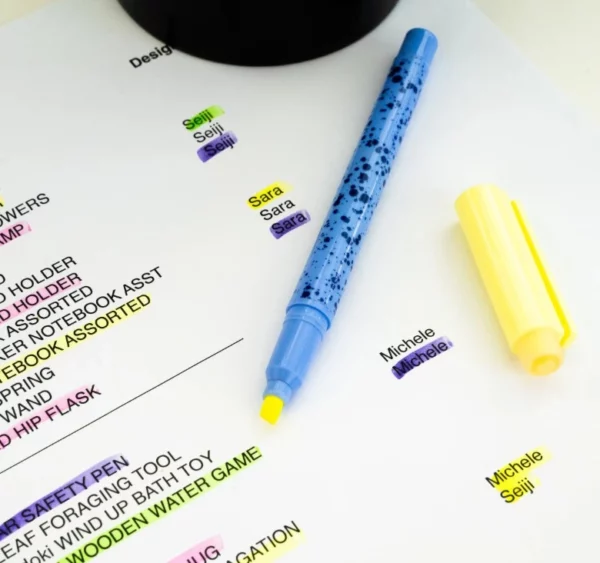 Desig
Seiji
Seiji
Seiji
Sara
Sara
Sara
OWERS
AMP
D HOLDER
D HOLDER
ASSORTED
KER NOTEBOOK ASST
TEBOOK ASSORTED
SPRING
WAND
D HIP FLASK
Michele
Michele
Michele
Seiji
AR SAFETY PEN
LEAF FORAGING TOOL
oki WIND UP BATH TOY
WOODEN WATER GAME
HUG
AGATION